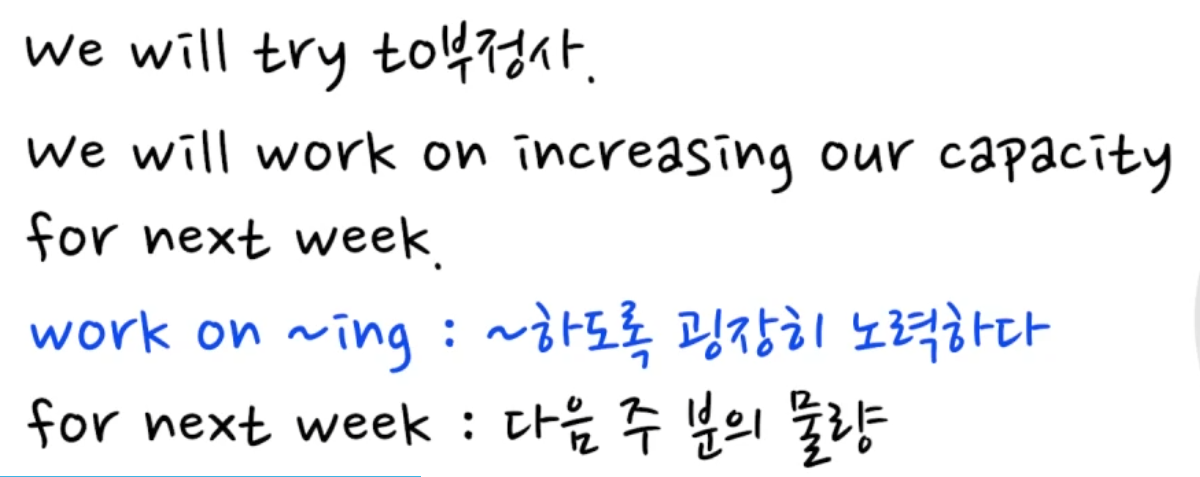 We will try to부정사.
We will work on increasing our capacity
for next week.
work on ~ing : ~하도록 굉장히 노력하다
for next week : 다음 주 분의 물량